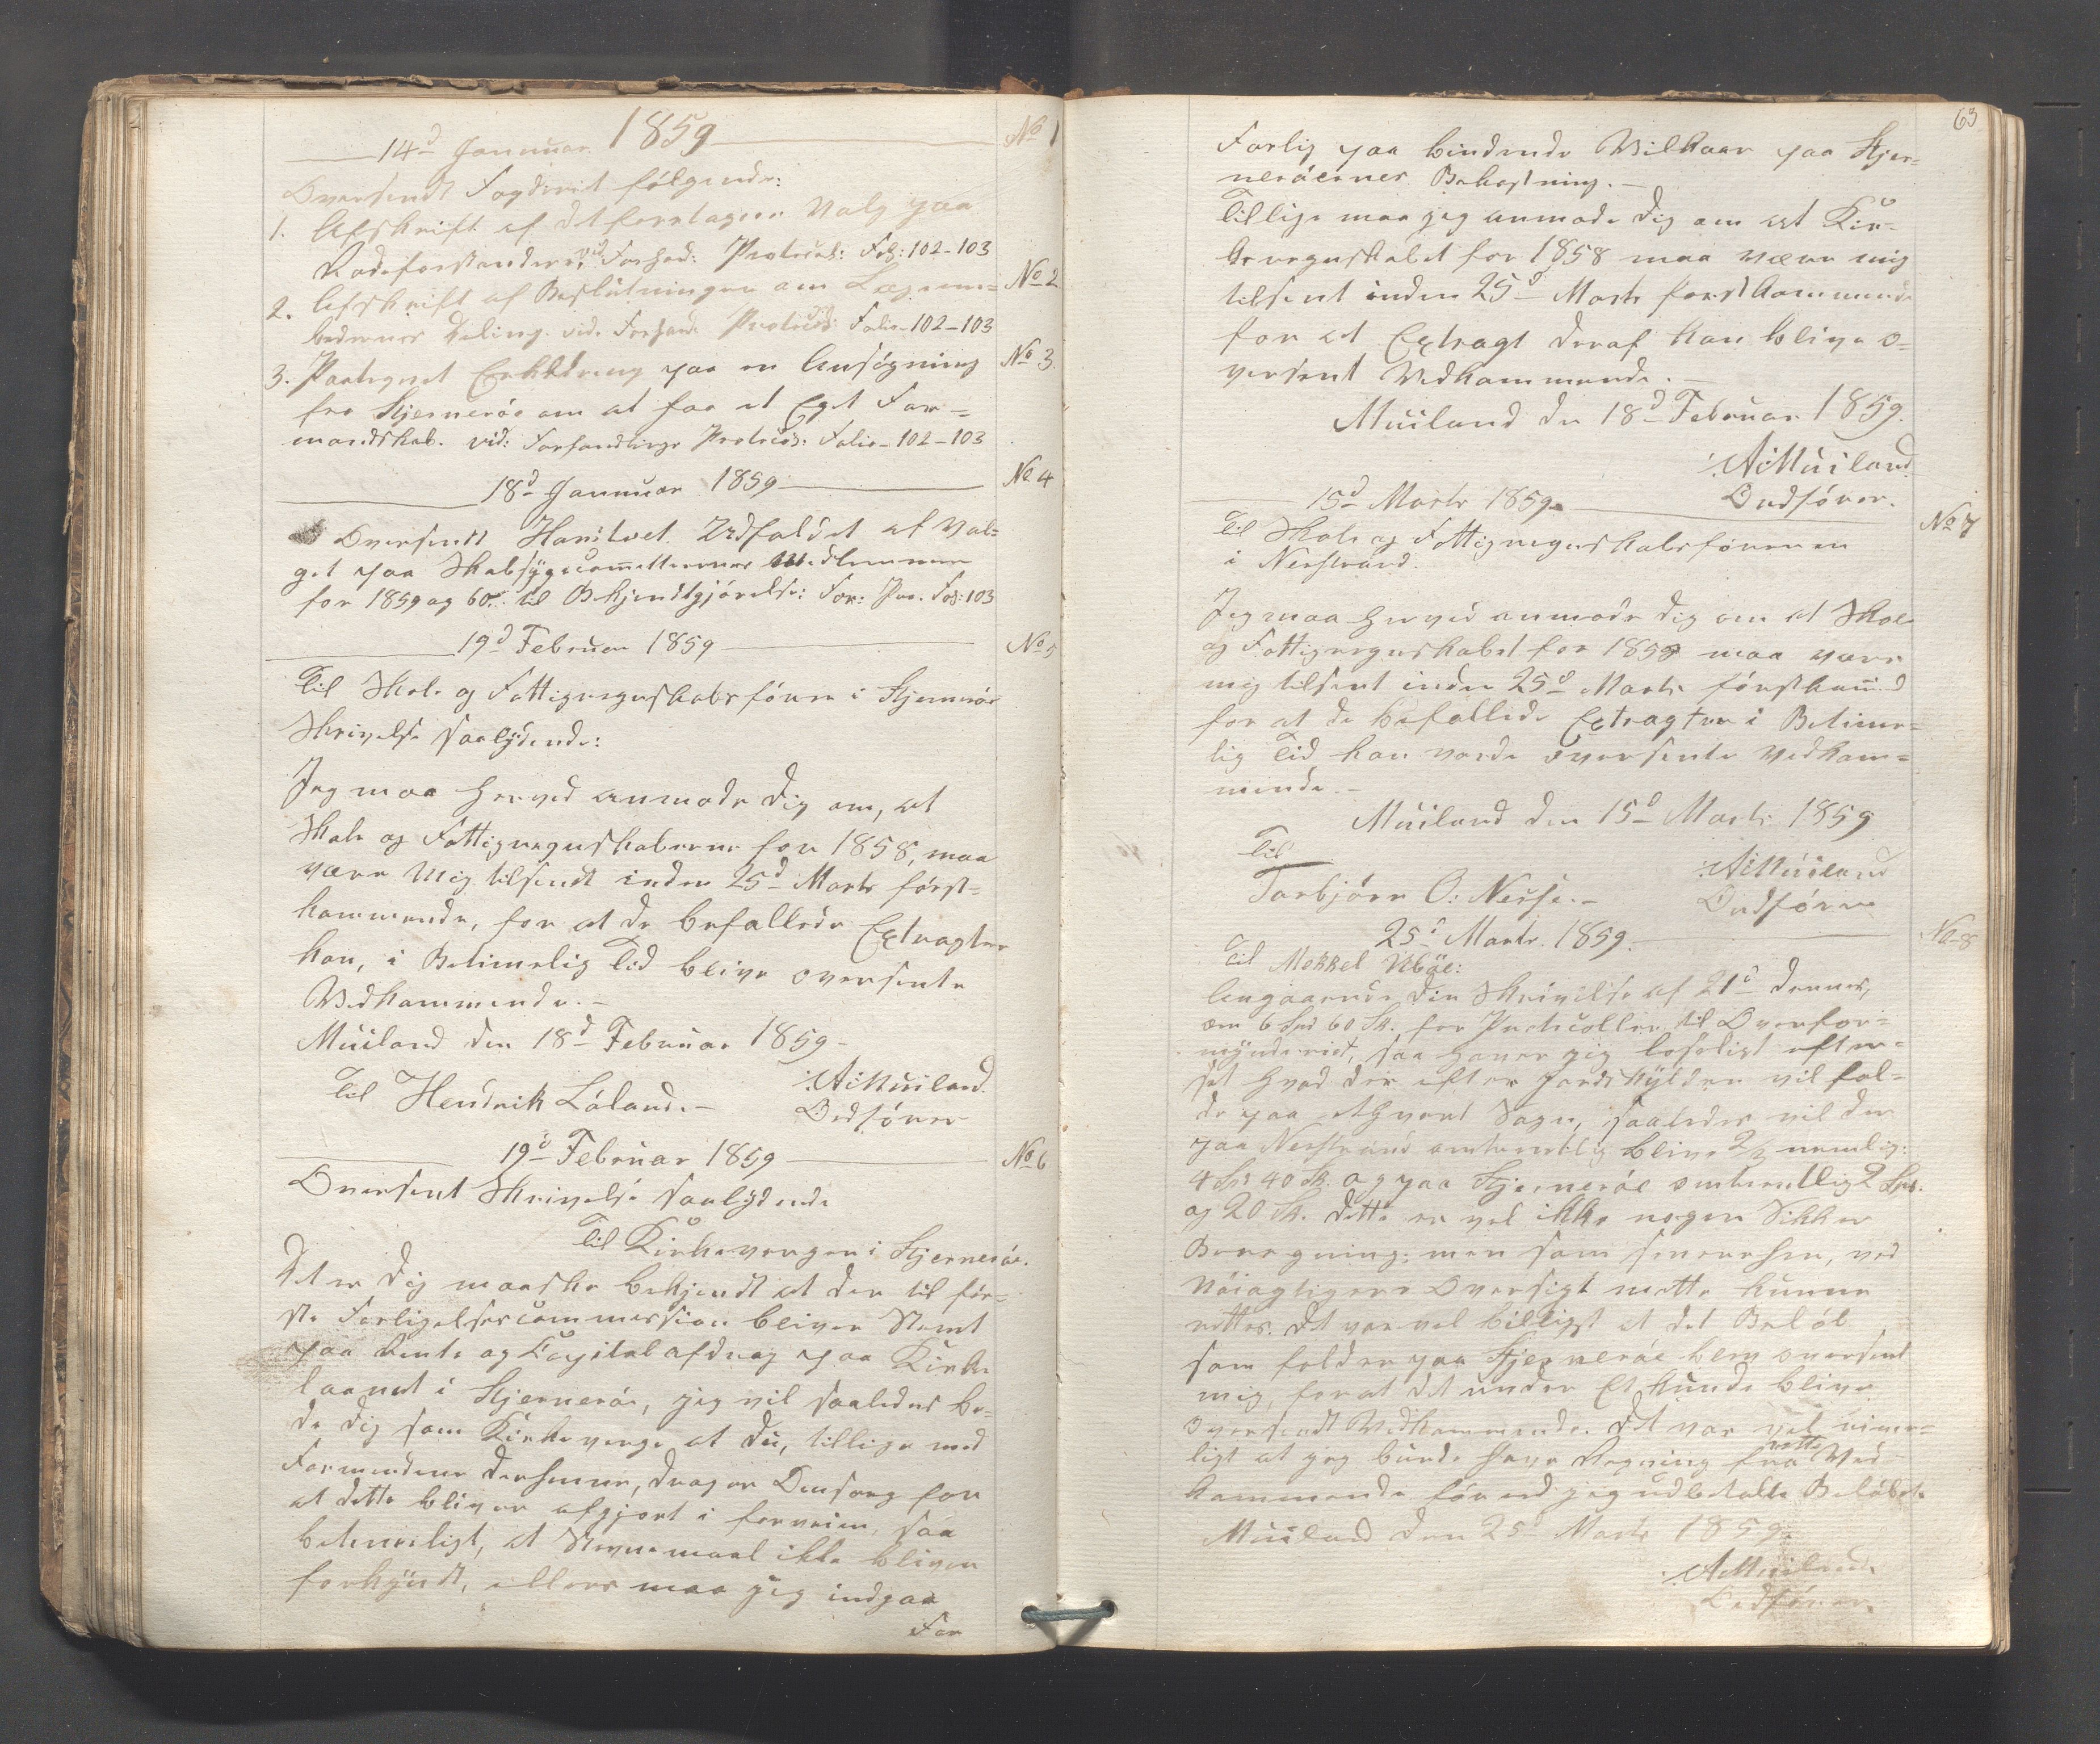 14d Januar 1859
No 1
Oversendt Fogderiet følgende:
1. Afskrift af det foretagne Valg paa
Rodeforstandere, vid Forhand: Protocol: Fol: 102-103
2. Afskrift af Beslutningen om Lægem-
No 2
bedernes Deling. vide Forhand: Protocol: Folio-102-103
3. Paategnet Erklæring paa en Ansøgning
No 3
fra Hjernerøe om at faa et Eget For-
mandskab. vid: Forhandlings Protocol: Folio-102-103
18d Januar 1859
No 4
Oversendt Herredet Udfaldet af Val-
get paa Skabsygecommitteernes Medlemmer
for 1859 og 60. til Bekjendtgjørelse: For: Pro. Fol: 103
19d Februar 1859
No 5
Til Skole og Fattigregnskabsfører i Hjernerøe
Skrivelse saalydende:
Jeg maa herved anmode dig om, at
Skole og Fattigregnskaberne for 1858, maa
være Mig tilsendt inden 25d Marts først-
kommende, for at de befallede Extragter
kan, i Betimelig Tid blive oversente
Vedkommende.-
Müiland den 18d Februar 1859-
Til Hendrik Løland.-
A: Müiland
Ordfører
19d Februar 1859
No 6
Oversent Skrivelse saalydende
Til Kirkevergen i Hjernerøe.
Det er dig maaske bekjendt at der til før-
ste Forligelsescommission bliver Stemt
paa Rente og Capital afdrag paa Kirke
laanet i Hjernerøe, jeg vil saaledes be-
de dig som Kirkeverge at du, tillige med
Formendene dersteme, drager Omsorg for
at dette bliver afgjort i forveien, saa
betimeligt, at Stevnemaal ikke bliver
forkyndt, ellers maa jeg indgaa
For
63
Forlig paa bindende Vilkaar paa Hjer-
nerøernes Bekostning.-
Tillige maa jeg anmode dig om at Kir-
keregnskabet for 1858 maa være mig
tilsent inden 25d Marts førstkommende
for at Extragt deraf kan blive o-
versent Vedkommende.-
Müiland den 18d Februar 1859.
A: Müiland
Ordfører.
15d Marts 1859.
No 7
Til Skole og Fattigregnskabsføreren
i Nerstrand.
Jeg maa herved anmode dig om at Skole
og Fattigregnskabet for 1858 maa være
mig tilsent inden 25d Marts førstkommd
for at de befallede Extragter i Betime-
lig Tid kan vorde oversente Vedkom-
mende.-
Müiland den 15d Marts 1859
Til
Torbjørn O: Nerse.-
A: Müiland
Ordfører
25d Marts 1859.
No 8
Til Mekkel Ubøe:
Angaaende din Skrivelse af 21d dennes,
om 6 Spd 60 Sk. for Protocoller til Overfor-
mynderiet, saa haver jeg loseligt efter-
set hvad der efter Jordskylden vil fal-
de paa ethvert Sogn, saaledes vil der
paa Nerstrand omtrentlig blive 2/3 nemlig:
4 Spd 40 Sk. og paa Hjernerøe omtrentlig 2 Spd.
og 20 Sk. dette er vel ikke nogen Sikker
Beregning; men som senerehen, ved
nøiagtigere Oversigt matte kunne
rettes. det var vel billigst at det Beløb
som falder paa Hjernerøe blev oversent
mig, for at det under Et kunde blive
oversendt Vedkommende. det var vel rime-
ligt at jeg burde have Regning fra rette Ved
kommende førend jeg udbetalte Beløbet.
Müiland den 25d Marts 1859.
A: Müiland
Ordfører.